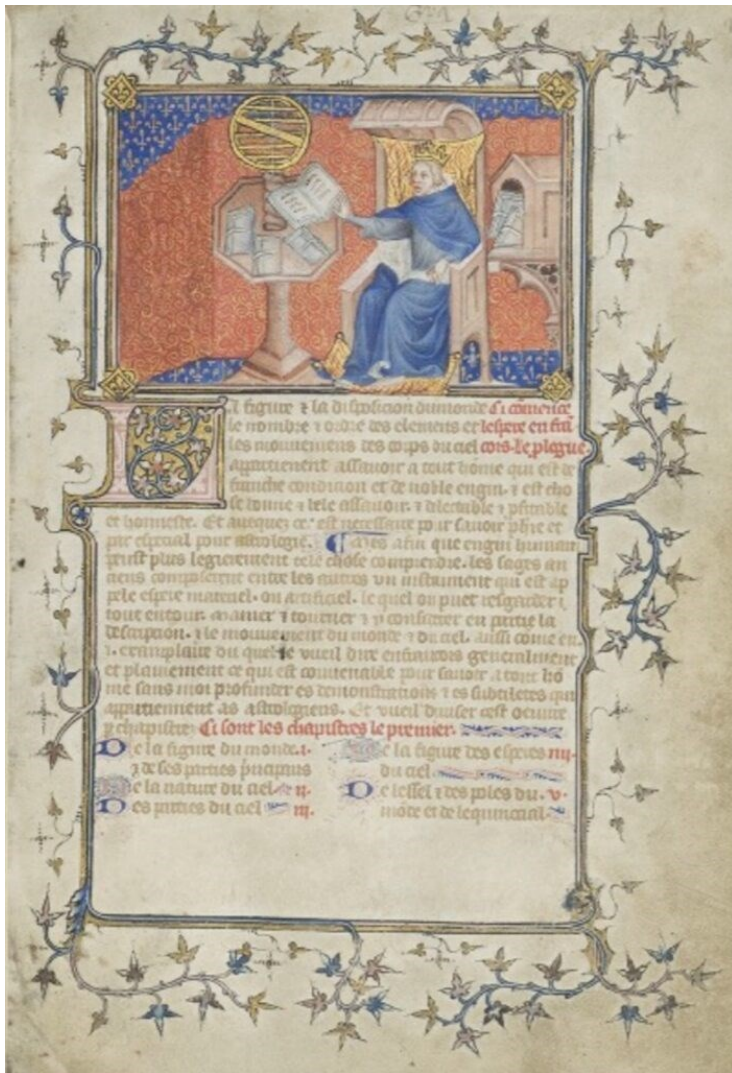 la figure ⁊ la disposicion du monde Ci cōmence
le nombre ⁊ ordre des elemens et lespere en frā
les mouuemens des corps du ciel cois. le plogue
appartienent assauoir a tout hōme qui est de
franche condicion et de noble engin. ⁊ est cho
se bonne ⁊ bele assauoir. ⁊ delectable ⁊ pfitable
et honneste. Et auecques ce est necessaire pour sauoir phie et
par especial pour astrologie. Mes afin que engin humain
puist plus legierement tele chose comprendre. les sages an
ciens composerent entre les autres vn instrument qui est ap
pele espere materiel. ou artificiel. le quel on puet resgarder
tout entour. manier ⁊ tourner ⁊ y considerer en partie la
description. ⁊ le mouuement du monde ⁊ du ciel. aussi come en
.i. exemplaire du quel ie vueil dire en francois generalment
et plainement ce qui est conuenable pour sauoir a tout hō
me sans moi profunder es demonstracions ⁊ es subtiletes qui
appartienent as astrologiens. Et vueil diuiser cest oeuure
p chapistres Ci sont les chapistres le premier.
De la figure du monde .i.
⁊ de ses parties principaus
De la nature du ciel .ii.
Des parties du ciel .iii.
De la figure des esperes .iiii.
du ciel
De lessel ⁊ des poles du .v.
mōde et de lequinoccial